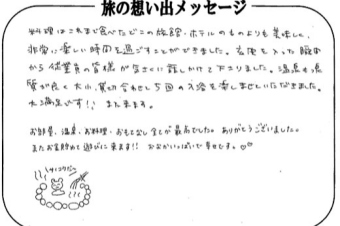 旅の想い出メッセージ
料理はこれまで食べたどこの旅館・ホテルのものよりも美味しく、
非常に楽しい時間を過ごすことができました。玄関を入った瞬間
から従業員の皆様が気さくに話しかけて下さりました。温泉も泉
質が良く大小、貸切合わせて5回の入浴を楽しませていただきました。
大満足です!! また来ます。
お部屋、温泉、お料理、おもてなし全てが最高でした。ありがとうございました。
またお金貯めて遊びに来ます!! おなかいっぱいで幸せです。♡♡